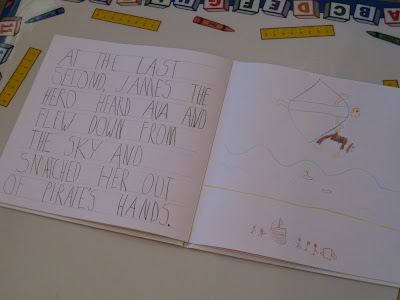 AT THE LAST
SECOND, JAMES THE
HERO HEARD AVA AND
FLEW DOWN FROM
THE SKY AND
SNATCHED HER OUT
OF PIRATE'S HANDS.